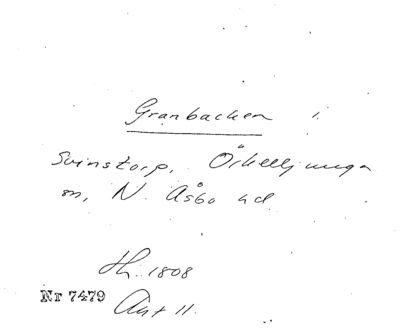 Granbacken i
Svinstorp, Örkelljunga
sn, N. Åsbo hd
Hl. 1808
Nr 7479
Akt 11.